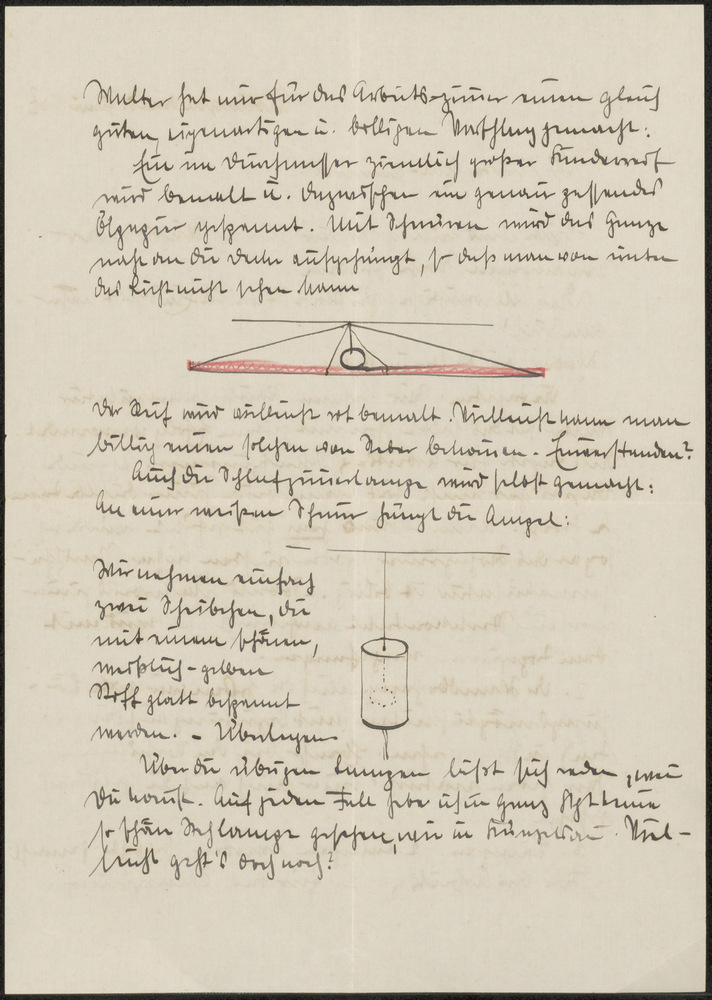 Walter hat nur für das Arbeits-zimmer einen gleich
guten, eigenartigen u. billigen Vorschlag gemacht:
Ein im Durchmesser ziemlich großer Kinderreif
wird bemalt u. dazwischen ein genau passendes
Ölpapier gespannt. Mit Schnüren wird das Ganze
nahe an die Decke aufgehängt, so daß man von unten
das Licht nicht sehen kann
Der Reif wird vielleicht rot bemalt. Vielleicht kann man
billig einen solchen von bekommen. - Einverstanden?
Auch die Schlafzimmerlampe wird selbst gemacht:
An einer weißen Schnur hängt die Ampel:
Wir nehmen einfach
zwei Scheibchen, die
mit einem schönen,
weißlich-gelben
Stoff glatt bespannt
werden. - Überlegen
Über die übrigen Lampen läßt sich reden, wenn
Du kommst. Auf jeden Fall habe ich in ganz keine
so schöne Stehlampe gesehen, wie in Künzelsau. Viel-
leicht geht's doch noch?